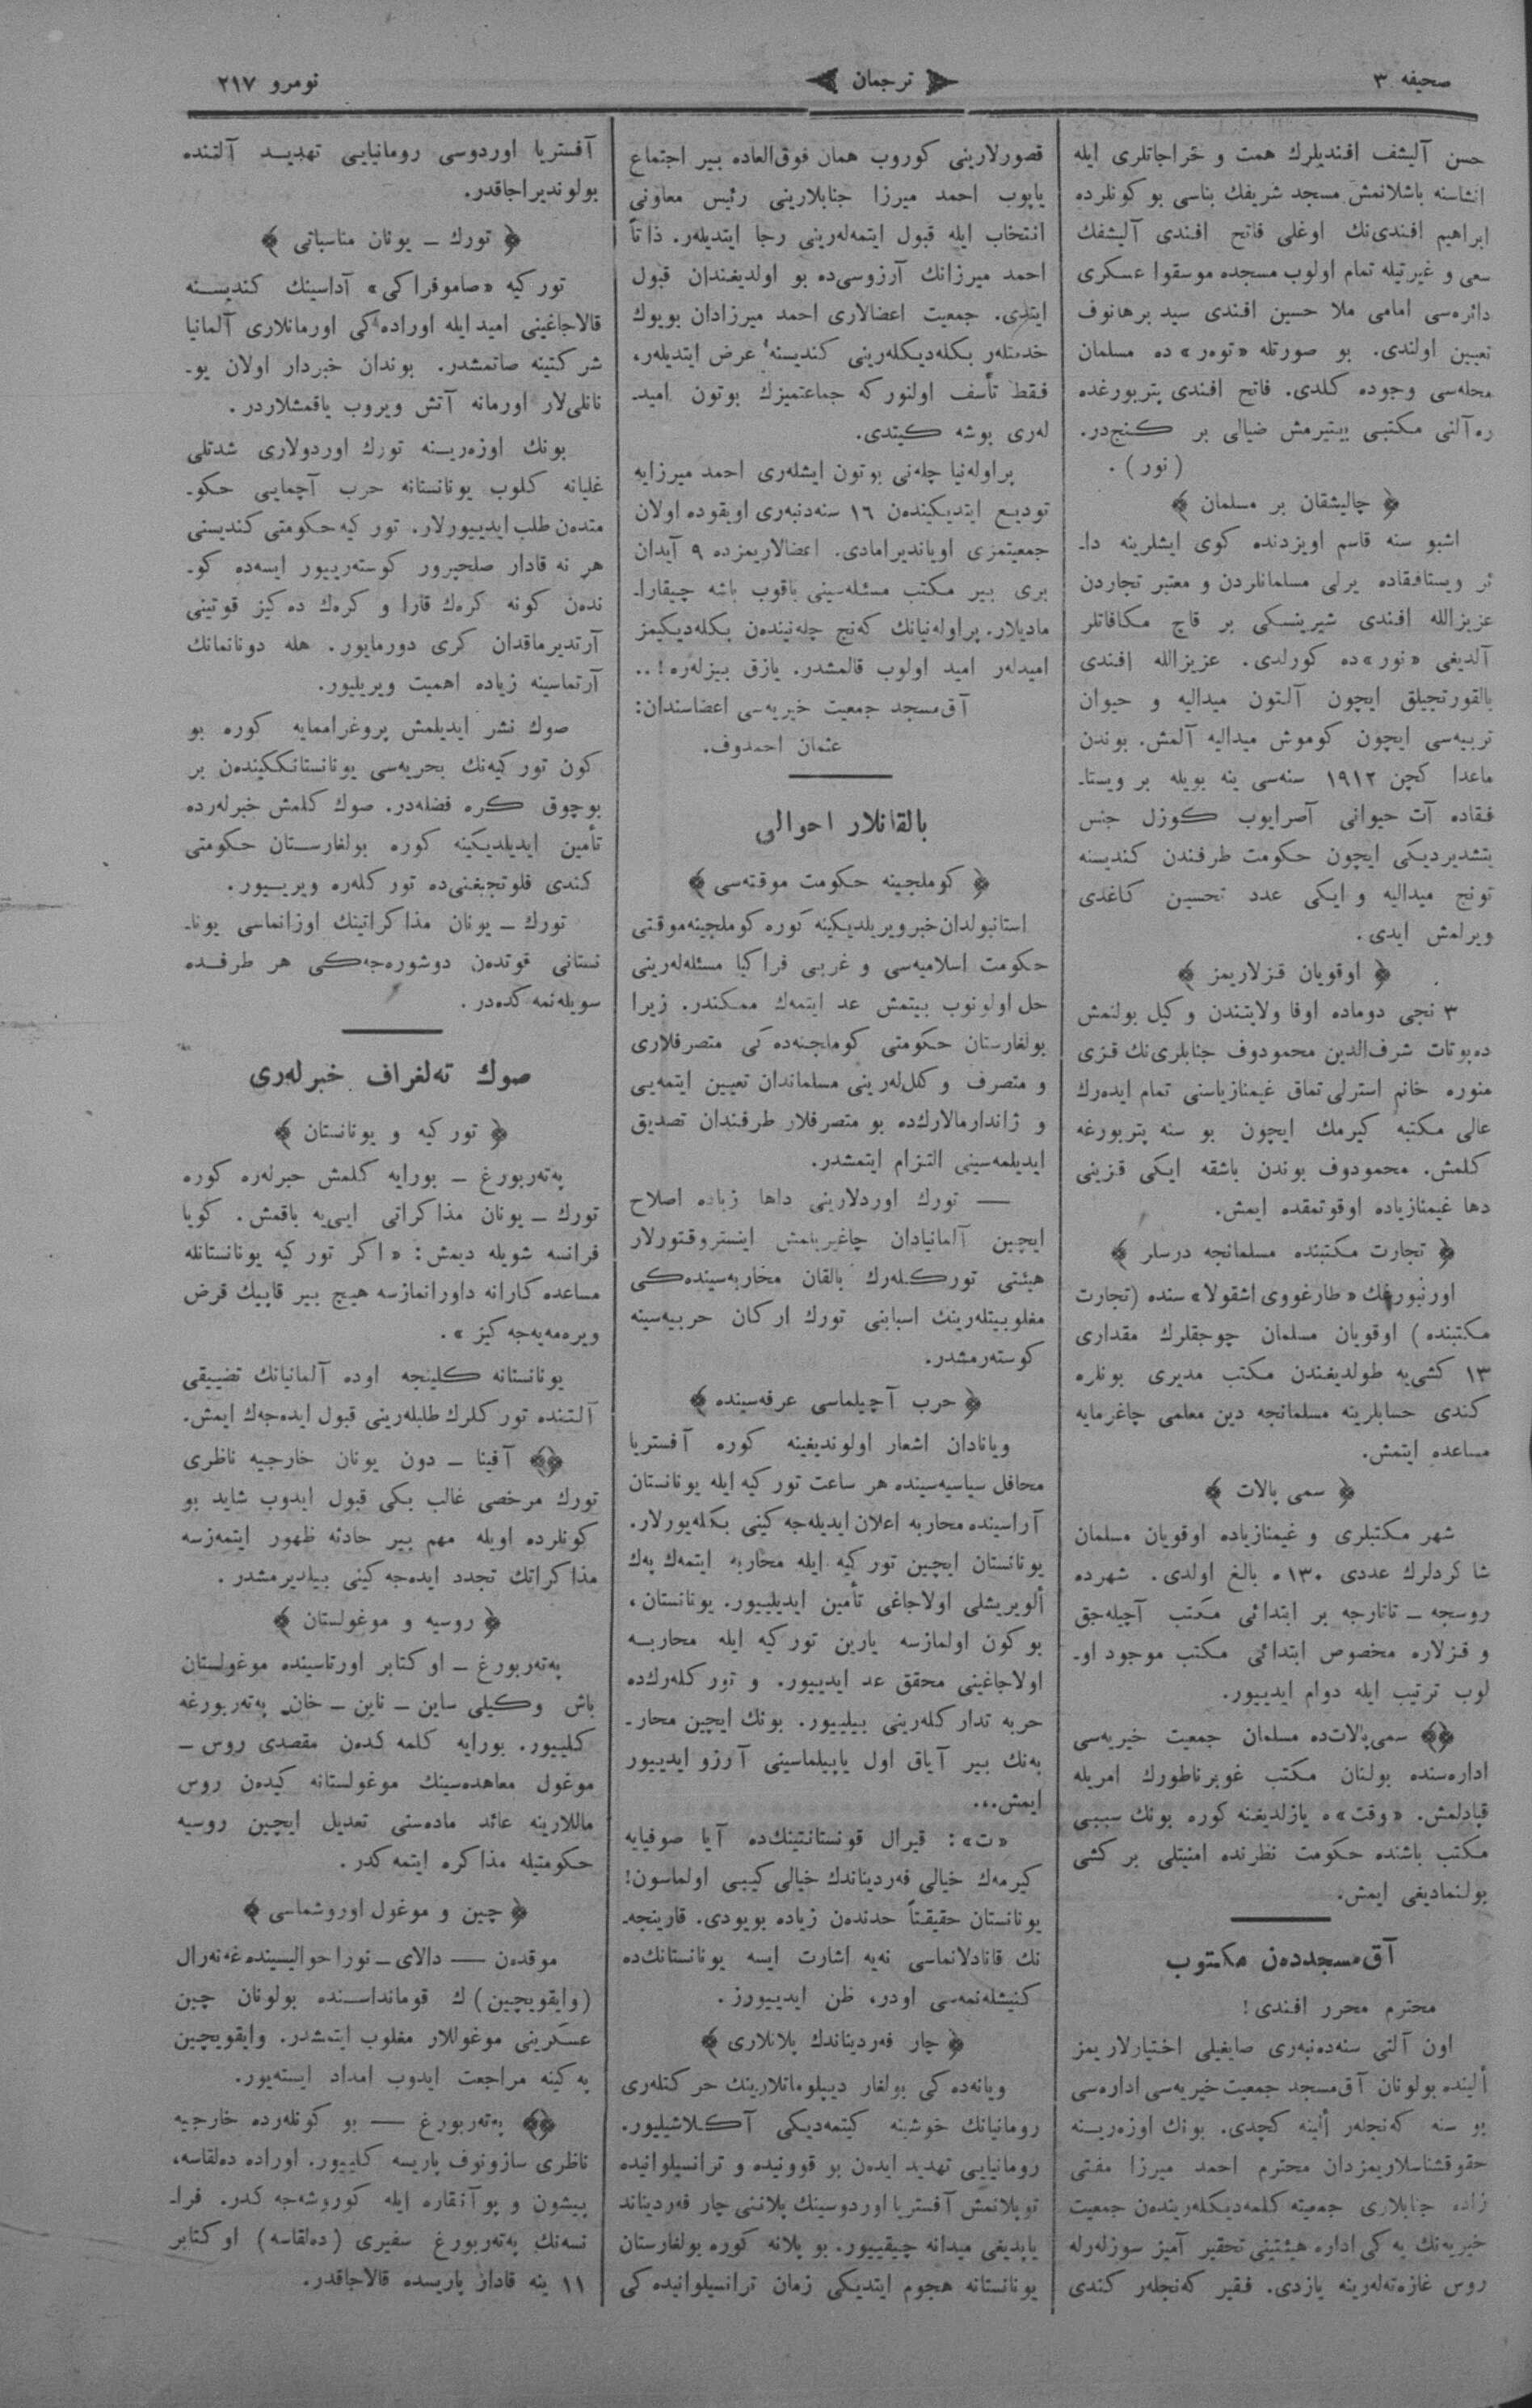 صحیفه ٣
ترجمان
نومرو ٢١٧
حسن آلیشف افندیلرك همت و خراجاتلری ایله
انشاسنه باشلانمش مسجد شریفك بناسی بو كونلرده
ابراهیم افندی‌نك اوغلی فاتح افندی آلیشفك
سعی و غیرتیله تمام اولوب مسجده موسقوا عسكری
دائره‌سی امامی ملا حسین افندی سید برهانوف
تعیین اولندی. بو صورتله «توه‌ر» ده مسلمان
محله‌سی وجوده كلدی. فاتح افندی پتربورغده
ره‌آلنی مكتبی بیتیرمش ضیالی بر كنج‌در.
(نور) .
﴿ چالیشقان بر مسلمان ﴾
اشبو سنه قاسم اویزدنده كوی ایشلرینه دا-
ئر ویستافقاده یرلی مسلمانلردن و معتبر تجاردن
عزیزالله افندی شیرینسكی بر قاچ مكافاتلر
آلدیغی «نور» ده كورلدی. عزیزالله افندی
بالقورتجیلق ایچون آلتون میدالیه و حیوان
تربیه‌سی ایچون كوموش میدالیه آلمش. بوندن
ماعدا كچن ١٩١٢ سنه‌سی ینه بویله بر ویستا-
فقاده آت حیوانی آصرایوب كوزل جنس
یتشدیردیكی ایچون حكومت طرفندن كندیسنه
تونج میدالیه و ایكی عدد تحسین كاغدی
ویرلمش ایدی .
﴿ اوقویان قزلاریمز ﴾
٣ نجی دوماده اوفا ولایتندن وكیل بولنمش
ده‌پوتات شرف‌الدین محمودوف جنابلری‌نك قزی
منوره خانم استرلی تماق غیمنازیاسنی تمام ایده‌رك
عالی مكتبه كیرمك ایچون بو سنه پتربورغه
كلمش. محمودوف بوندن باشقه ایكی قزینی
دها غیمنازیاده اوقوتمقده ایمش.
﴿ تجارت مكتبنده مسلمانجه درسلر ﴾
اورنبورغك «طارغووی اشقولا» سنده (تجارت
مكتبنده) اوقویان مسلمان چوجقلرك مقداری
١٣ كشی‌یه طولدیغندن مكتب مدیری بونلره
كندی حسابلرینه مسلمانجه دین معلمی چاغرمایه
مساعده ایتمش.
﴿ سمی پالات ﴾
شهر مكتبلری و غیمنازیاده اوقویان مسلمان
شاكردلرك عددی ١٣٠ ه بالغ اولدی. شهرده
روسجه ـ تاتارجه بر ابتدائی مكتب آچیله‌جق
و قزلاره مخصوص ابتدائی مكتب موجود او-
لوب ترتیب ایله دوام ایدییور.
﴿﴾ سمی‌پالات‌ده مسلمان جمعیت خیریه‌سی
اداره‌سنده بولنان مكتب غوبرناطورك امریله
قپادلمش. «وقت» ه یازلدیغنه كوره بونك سببی
مكتب باشنده حكومت نظرنده امنیتلی بر كشی
بولنمادیغی ایمش.
آق‌مسجددەن مكتوب
محترم محرر افندی!
اون آلتی سنه‌ده‌نبه‌ری صایغیلی اختیارلاریمز
ألینده بولونان آق‌مسجد جمعیت خیریه‌سی اداره‌سی
بو سنه كه‌نجله‌ر ألینه كچدی. بونك اوزه‌رینه
حقوقشناسلاریمزدان محترم احمد میرزا مفتی
زاده جنابلاری جمعیته كلمه‌دیكله‌ریندەن جمعیت
خیریه‌نك یه‌كی اداره هیئتینی تحقیر آمیز سوزله‌رله
روس غازه‌ته‌له‌رینه یازدی. فقیر كه‌نجله‌ر كندی
قصورلارینی كوروب همان فوق‌العاده بیر اجتماع
یاپوب احمد میرزا جنابلارینی رئیس معاونی
انتخاب ایله قبول ایتمه‌له‌رینی رجا ایتدیله‌ر. ذاتاً
احمد میرزانك آرزوسی‌ده بو اولدیغندان قبول
ایتدی. جمعیت اعضالاری احمد میرزادان بویوك
خدمتله‌ر بكله‌دیكله‌رینی كندیسنه عرض ایتدیله‌ر،
فقط تأسف اولنور كه جماعتمیزك بوتون امید-
له‌ری بوشه كیتدی.
پراوله‌نیا چله‌نی بوتون ایشله‌ری احمد میرزایه
تودیع ایتدیكیندەن ١٦ سنه‌دنبه‌ری اویقوده اولان
جمعیتمزی اویاندیرامادی. اعضالاریمزده ٩ آیدان
بری بیر مكتب مسئله‌سینی باقوب باشه چیقارا-
مادیلار. پراوله‌نیانك كه‌نج چله‌نیندەن بكله‌دیكیمز
امیدله‌ر امید اولوب قالمشدر. یازق بیزله‌ره!..
آق‌مسجد جمعیت خیریه‌سی اعضاسندان:
عثمان احمدوف.
بالقانلار احوالی
﴿ كوملجینه حكومت موقته‌سی ﴾
استانبولدان خبر ویریلدیكینه كوره كوملجینه موقتی
حكومت اسلامیه‌سی و غربی فراكیا مسئله‌له‌رینی
حل اولونوب بیتمش عد ایتمه‌ك ممكندر. زیرا
بولغارستان حكومتی كوملجنه‌ده‌كی متصرفلاری
و متصرف وكللەرینی مسلماندان تعیین ایتمه‌یی
و ژاندارمالارك‌ده بو متصرفلار طرفندان تصدیق
ایدیلمه‌سینی التزام ایتمشدر.
— تورك اوردلارینی داها زیاده اصلاح
ایچین آلمانیادان چاغیریلمش اینستروقتورلار
هیئتی توركله‌رك بالقان محاربه‌سینده‌كی
مغلوبیتله‌رینك اسبابنی تورك اركان حربیه‌سینه
كوسته‌رمشدر.
﴿ حرب آچیلماسی عرفه‌سینده ﴾
ویانادان اشعار اولوندیغینه كوره آفستریا
محافل سیاسیه‌سینده هر ساعت توركیه ایله یونانستان
آراسینده محاربه اعلان ایدیله‌جه‌كینی بكله‌یورلار.
یونانستان ایچین توركیه ایله محاربه ایتمه‌ك پەك
ألویریشلی اولاجاغی تأمین ایدیلییور. یونانستان،
بو كون اولمازسه یارین توركیه ایله محاربه
اولاجاغینی محقق عد ایدییور. و توركله‌رك‌ده
حربه تداركله‌رینی بیلییور. بونك ایچین محار-
به‌نك بیر آیاق اول یاپیلماسینی آرزو ایدییور
ایمش...
«ت»: قیرال قونستانتینك‌ده آیا صوفیایه
كیرمه‌ك خیالی فه‌ردیناندك خیالی كیبی اولماسون!
یونانستان حقیقتاً حدندەن زیاده بویودی. قارینجه-
نك قانادلانماسی نه‌یه اشارت ایسه یونانستانك‌ده
كنیشله‌نمه‌سی اودر، ظن ایدییورز.
﴿ چار فه‌ردیناندك پلانلاری ﴾
ویانه‌ده‌كی بولغار دیپلوماتلارینك حركتله‌ری
رومانیانك خوشینه كیتمه‌دیكی آكلاشیلیور.
رومانیایی تهدید ایدەن بو قوونیده و ترانسیلوانیده
توپلانمش آفستریا اوردوسینك پلاننی چار فه‌ردیناند
یاپدیغی میدانه چیقییور. بو پلانه كوره بولغارستان
یونانستانه هجوم ایتدیكی زمان ترانسیلوانیده‌كی
آفستریا اوردوسی رومانیایی تهدید آلتنده
بولوندیراجاقدر.
﴿ تورك ـ یونان مناسباتی ﴾
توركیه «صاموفراكی» آداسینك كندیسنه
قالاجاغینی امید ایله اوراده‌كی اورمانلاری آلمانیا
شركتینه صاتمشدر. بوندان خبردار اولان یو-
نانلی‌لار اورمانه آتش ویروب یاقمشلاردر.
بونك اوزه‌رینه تورك اوردولاری شدتلی
غلیانه كلوب یونانستانه حرب آچمایی حكو-
متدەن طلب ایدییورلار. توركیه حكومتی كندیسنی
هر نه قادار صلحپرور كوسته‌رییور ایسه‌ده كو-
ندەن كونه كرەك قارا و كرەك دەكیز قوتینی
آرتدیرماقدان كری دورمایور. هله دونانمانك
آرتماسینه زیاده اهمیت ویریلیور.
صوك نشر ایدیلمش پروغراممایه كوره بو
كون توركیه‌نك بحریه‌سی یونانستانككیندەن بر
بوچوق كره فضله‌در. صوك كلمش خبرله‌رده
تأمین ایدیلدیكینه كوره بولغارستان حكومتی
كندی فلوتجیغنی‌ده توركله‌ره ویرییور.
تورك ـ یونان مذاكراتینك اوزانماسی یونا-
نستانی قوتدەن دوشوره‌جه‌كی هر طرفده
سویله‌نمه‌كده‌در.
صوك ته‌لغراف خبرله‌ری
﴿ توركیه و یونانستان ﴾
په‌ته‌ربورغ ـ بورایه كلمش خبرله‌ره كوره
تورك ـ یونان مذاكراتی ایی‌یه باقمش. كویا
فرانسه شویله دیمش: «اكر توركیه یونانستانله
مساعده‌كارانه داورانمازسه هیچ بیر قاپیك قرض
ویرەمه‌یه‌جه‌كیز».
یونانستانه كلینجه اوده آلمانیانك تضییقی
آلتنده توركلرك طلبله‌رینی قبول ایده‌جه‌ك ایمش.
﴿﴾ آفینا ـ دون یونان خارجیه ناظری
تورك مرخصی غالب بكی قبول ایدوب شاید بو
كونلرده اویله مهم بیر حادثه ظهور ایتمه‌زسه
مذاكراتك تجدد ایده‌جه‌كینی بیلدیرمشدر.
﴿ روسیه و موغولستان ﴾
په‌ته‌ربورغ ـ اوكتابر اورتاسینده موغولستان
باش وكیلی ساین ـ ناین ـ خان په‌ته‌ربورغه
كلییور. بورایه كلمه‌كدەن مقصدی روس ـ
موغول معاهده‌سینك موغولستانه كیدەن روس
ماللارینه عائد ماده‌سنی تعدیل ایچین روسیه
حكومتیله مذاكره ایتمه‌كدر.
﴿ چین و موغول اوروشماسی ﴾
موقدەن — دالای ـ نورا حوالیسینده غه‌نه‌رال
(وایقویچین) ك قومانداسنده بولونان چین
عسكرینی موغوللار مغلوب ایتمشدر. وایقویچین
په‌كینه مراجعت ایدوب امداد ایسته‌یور.
﴿﴾ په‌ته‌ربورغ — بو كونله‌رده خارجیه
ناظری سازونوف پاریسه كلییور. اوراده ده‌لقاسه،
پیشون و پوآنقاره ایله كوروشه‌جه‌كدر. فرا-
نسه‌نك په‌ته‌ربورغ سفیری (ده‌لقاسه) اوكتابر
١١ ینه قادار پاریسده قالاجاقدر.